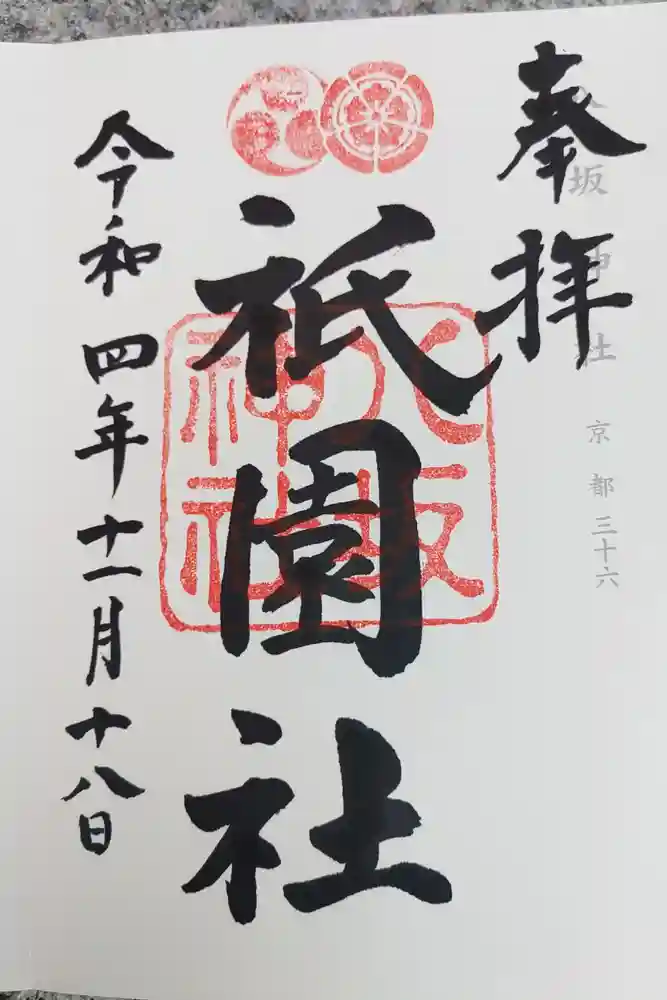 八坂神社 京都三十六
奉拝
祇園社
八坂
神社
令和四年十一月十八日